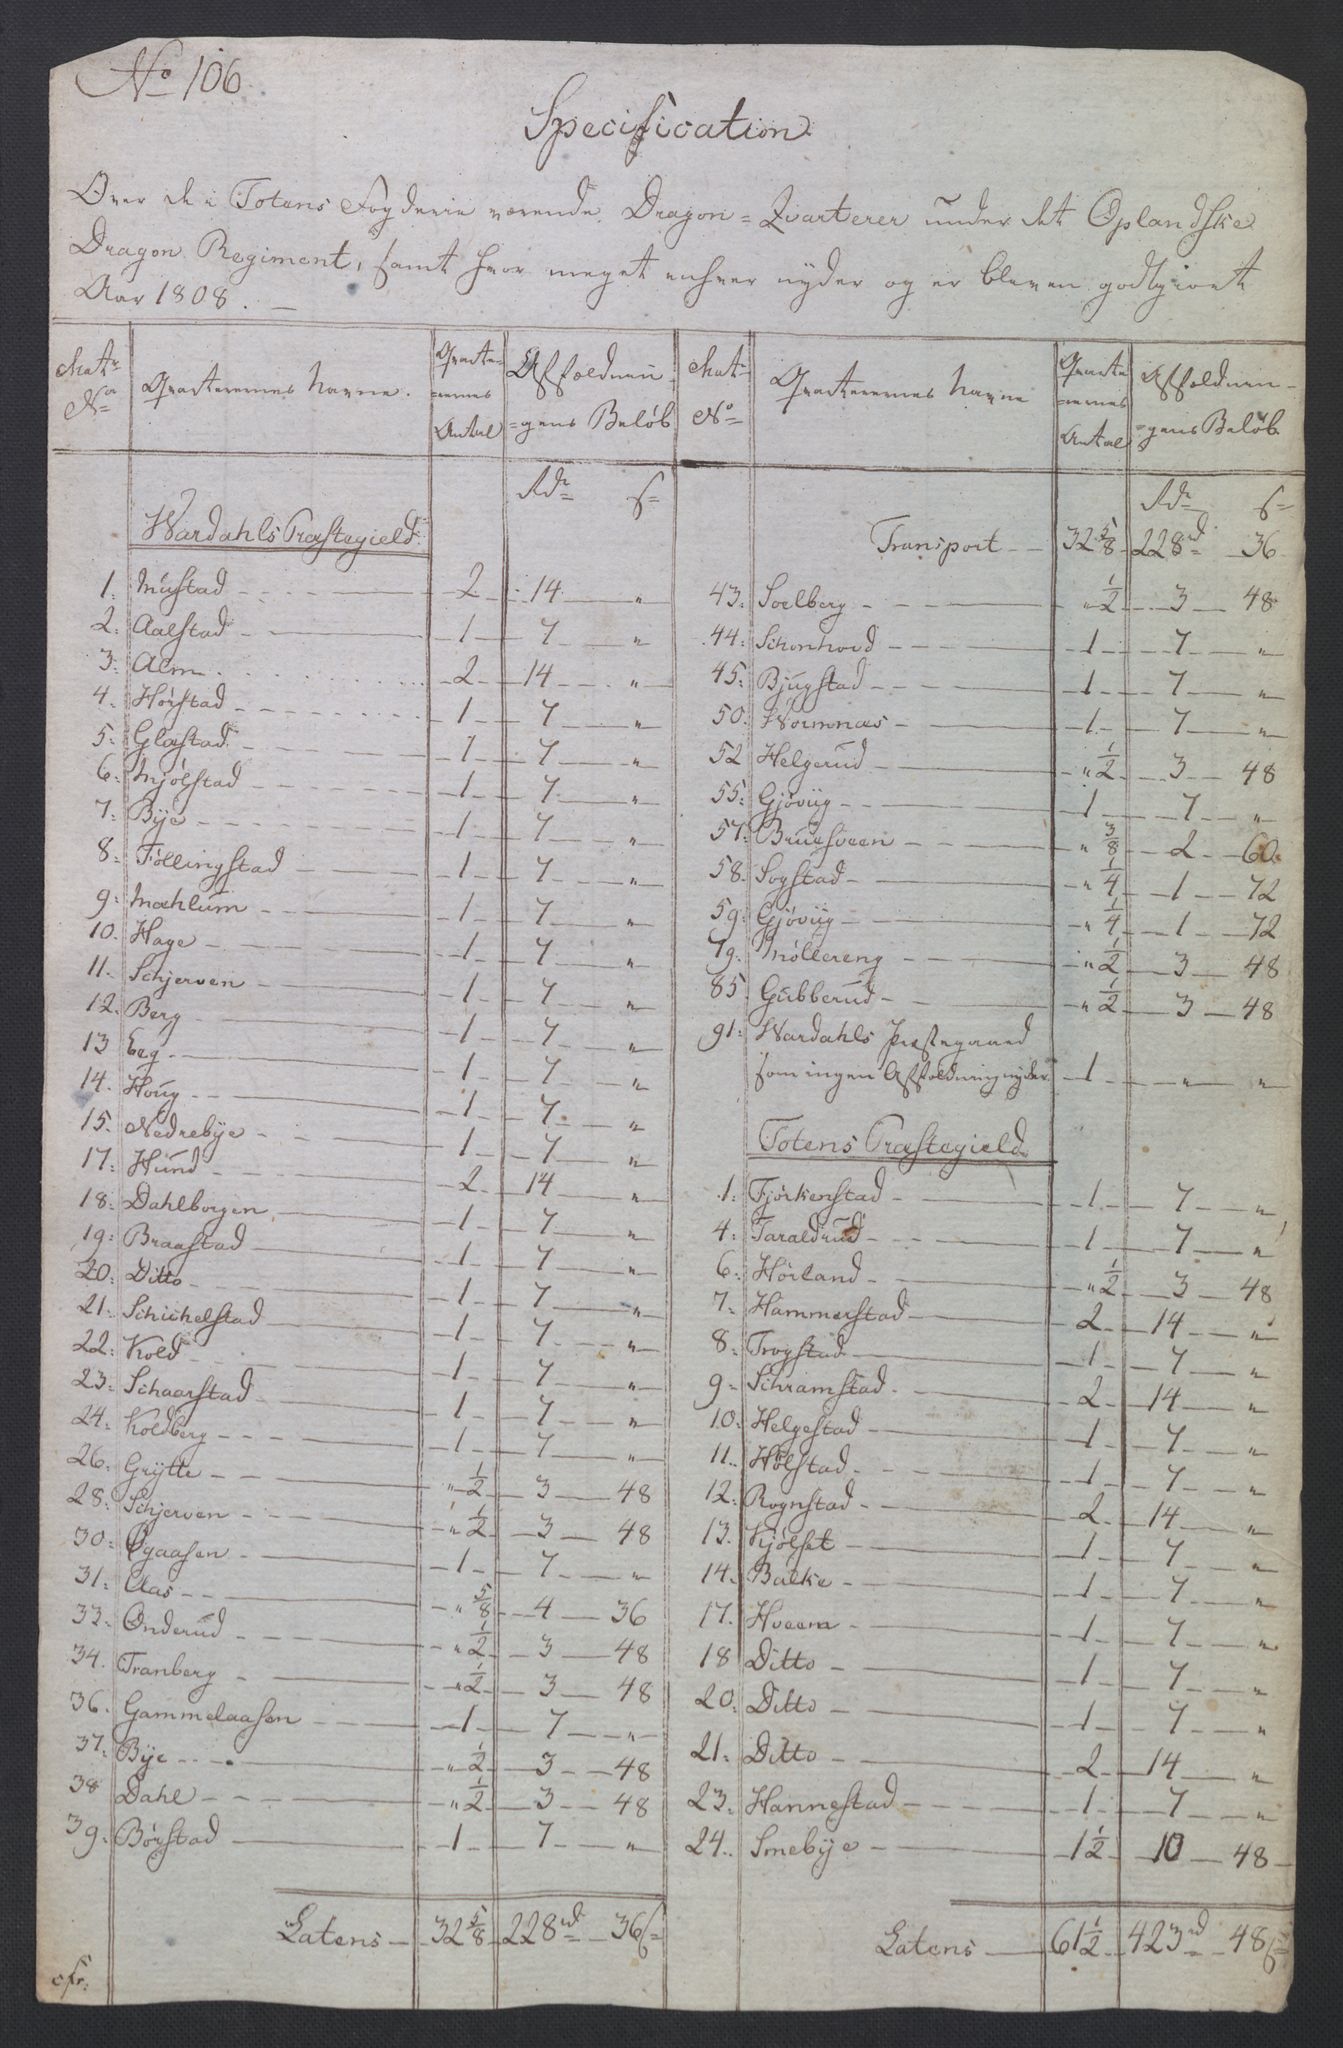 No 106
Specification
Over de i Totens Fogderie værende Dragon=Qvarterer under det Oplandske
Dragon Regiment, samt hvor meget enhver nyder og er bleven godtgiort
Aar 1808. —
Matr No | Qvarterernes Navne. | Qvarte=rernes Antal | Affældnin=gens Beløb
Rdr s
Wardahls Præstegield
1. Mustad 2 14 "
2. Aalstad 1 7 "
3. Alm 2 14 "
4. Hørstad 1 7 "
5. Glæstad 1 7 "
6. Mjølstad 1 7 "
7. Bÿe 1 7 "
8. Føllingstad 1 7 "
9. Mæhlum 1 7 "
10. Hage 1 7 "
11. Schjerven 1 7 "
12. Berg 1 7 "
13 Eeg 1 7 "
14. Houg 1 7 "
15. Nedrebÿe 1 7 "
17. Hund 2 14 "
18. Dahlborgen 1 7 "
19. Braastad 1 7 "
20. Ditto 1 7 "
21. Schichelstad 1 7 "
22. Kold 1 7 "
23. Schaarstad 1 7 "
24. Koldberg 1 7 "
26. Grÿtte " 1/2 3 48
28. Schjerven " 1/2 3 48
30. Øgaasen 1 7 "
31. Aas " 5/8 4 36
33. Onderud " 1/2 3 48
34. Tranberg " 1/2 3 48
36. Gammelaasen 1 7 "
37. Bÿe " 1/2 3 48
38 Dahl " 1/2 3 48
39. Børstad 1 7 "
Latens 32 5/8 228 rd 36 s
cfr:
Matr No | Qvarterernes Navne | Qvarte=rernes Antal | Affældnin=gens Beløb
Rdr s
Transport 32 5/8 228 rd 36
43. Soelberg " 1/2 3 48
44. Schonhovd 1 7 "
45. Bjugstad 1 7 "
50. Wormnæs 1 7 "
52 Helgerud " 1/2 3 48
55. Gjøviig 1 7 "
57. Bruusveen " 3/8 2 60
58. Sogstad " 1/4 1 72
59. Gjøviig " 1/4 1 72
79. Møllereng " 1/2 3 48
85. Gubberud " 1/2 3 48
91. Wardahls Præstegaard
som ingen Affældning nyder 1 " "
Totens Præstegield
1. Fjørkenstad 1 7 "
4. Taraldrud 1 7 "
6. Hørland " 1/2 3 48
7. Hammerstad 2 14 "
8. Trogstad 1 7 "
9. Schramstad 2 14 "
10. Helgestad 1 7 "
11. Hølstad 1 7 "
12. Rognstad 2 14 "
13. Kjølset 1 7 "
14. Balke 1 7 "
17. Hveem 1 7 "
18 Ditto 1 7 "
20. Ditto 1 7 "
21. Ditto 2 14 "
23. Hannestad 1 7 "
24. Smebÿe 1 1/2 10 48
Latens 61 1/2 423 rd 48 s